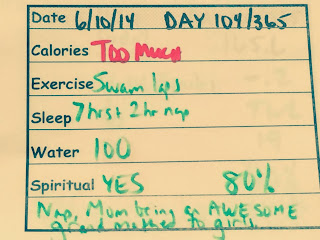 Date 6/10/14 DAY 109/365
Calories Too Much
Exercise Swam laps
Sleep 7hrs + 2hr nap
Water 100
Spiritual YES 80%
Nap, Mom being an AWESOME
grandmother to girls.